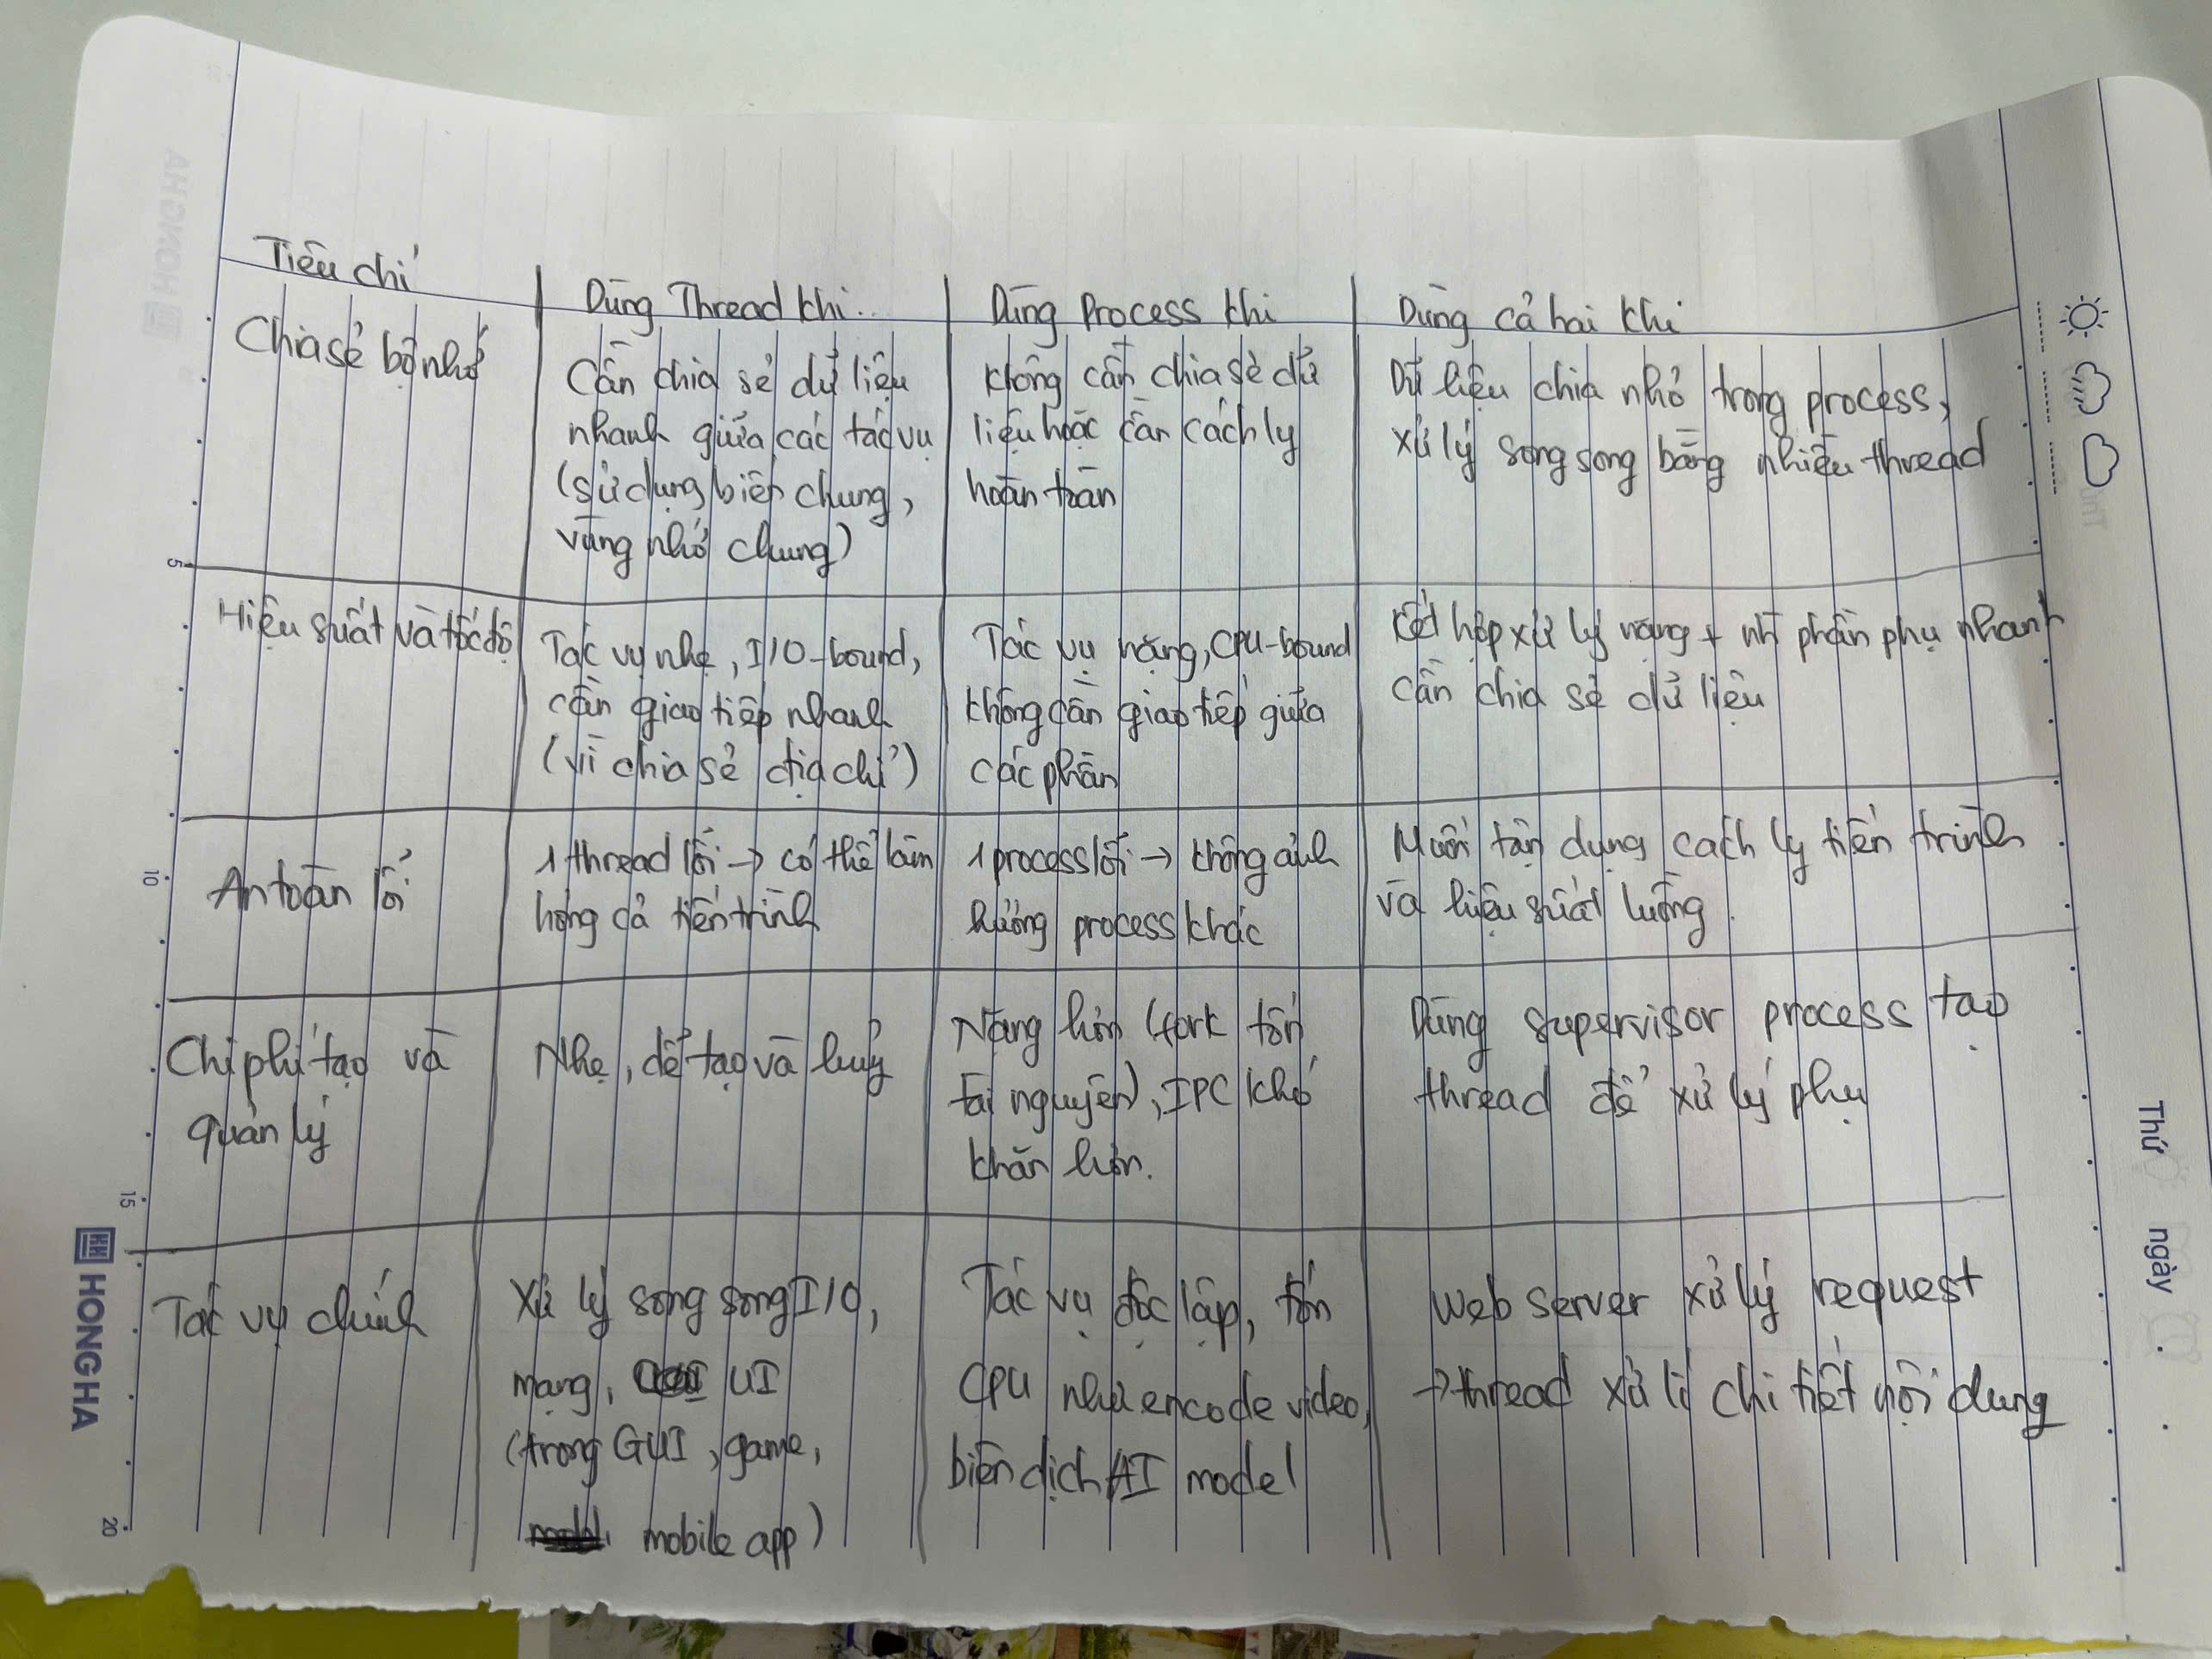 Tiêu chí
Dùng Thread khi..
Dùng Process khi
Dùng cả hai khi
Chia sẻ bộ nhớ
Cần chia sẻ dữ liệu
nhanh giữa các tác vụ
(sử dụng biến chung,
vùng nhớ chung)
không cần chia sẻ dữ
liệu hoặc cần cách ly
hoàn toàn
Dữ liệu chia nhỏ trong process,
xử lý song song bằng nhiều thread
Hiệu suất và tốc độ
Tác vụ nhẹ, I/O-bound,
cần giao tiếp nhanh
(vì chia sẻ địa chỉ)
Tác vụ nặng, CPU-bound
không cần giao tiếp giữa
các phần
Kết hợp xử lý nặng + nh phần phụ nhanh
cần chia sẻ dữ liệu
An toàn lỗi
1 thread lỗi → có thể làm
hỏng cả tiến trình
1 process lỗi → không ảnh
hưởng process khác
Muốn tận dụng cách ly tiến trình
và hiệu suất luồng.
Chi phí tạo và
quản lý
Nhẹ, dễ tạo và huỷ
Nặng hơn (fork tốn
tài nguyên), IPC khó
khăn hơn.
Dùng supervisor process tạo
thread để xử lý phụ
Tác vụ chính
Xử lý song song I/O,
mạng, UI
(trong GUI, game,
mobile app)
Tác vụ độc lập, tốn
CPU như encode video,
biên dịch AI model
Web server xử lý request
→ thread xử lí chi tiết nội dung
Thứ
ngày
HONG HA
HONG HA
5
10
15
20